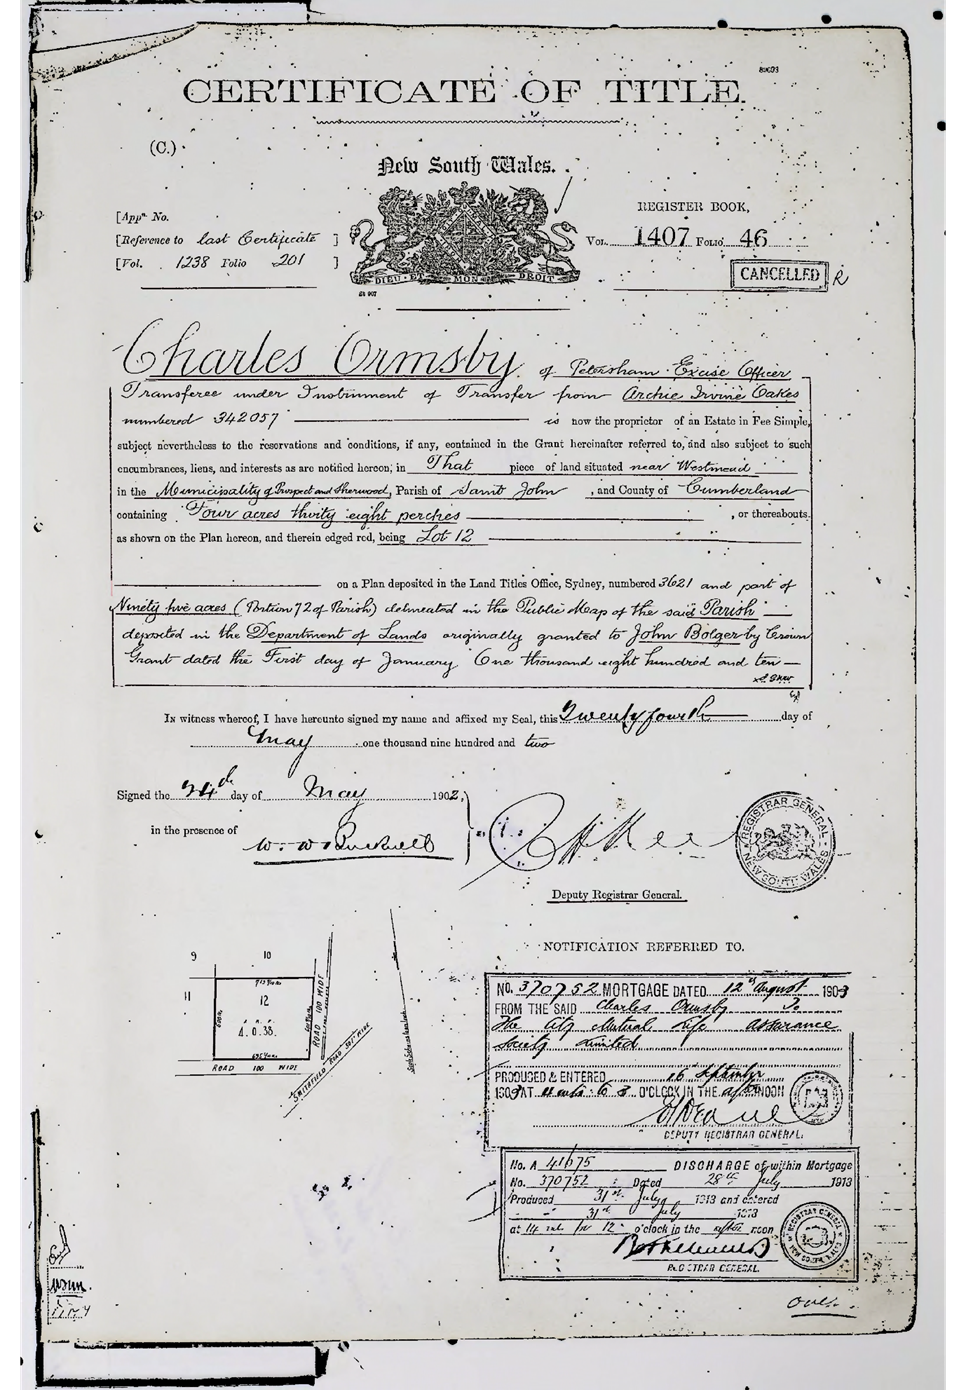 CERTIFICATE OF TITLE.
(C.)
New South Wales.
[Appn. No.
[Reference to Last Certificate ]
[Vol. 1238 Folio 201 ]
REGISTER BOOK,
VOL. 1407 FOLIO 46
CANCELLED
DIEU ET MON DROIT
Charles Ormsby of Petersham Excise Officer
Transferee under Instrument of Transfer from Archie Irvine Oakes
numbered 342057 is now the proprietor of an Estate in Fee Simple,
subject nevertheless to the reservations and conditions, if any, contained in the Grant hereinafter referred to, and also subject to such
encumbrances, liens, and interests as are notified hereon, in That piece of land situated near Westmead
in the Municipality of Prospect and Sherwood, Parish of Saint John, and County of Cumberland
containing Four acres thirty eight perches, or thereabouts,
as shown on the Plan hereon, and therein edged red, being Lot 12
on a Plan deposited in the Land Titles Office, Sydney, numbered 3621 and part of
Ninety five acres (Portion 72 of Parish) delineated in the Public Map of the said Parish
deposited in the Department of Lands originally granted to John Bolger by Crown
Grant dated the First day of January One thousand eight hundred and ten
In witness whereof, I have hereunto signed my name and affixed my Seal, this Twenty fourth day of
May one thousand nine hundred and two
Signed the 24th day of May 1902,
in the presence of
Deputy Registrar General.
REGISTRAR GENERAL
NEW SOUTH WALES
NOTIFICATION REFERRED TO.
9 10
11 12
4.0.38.
ROAD 100 WIDE
ROAD 100 WIDE
SMITHFIELD ROAD
No. 370752 MORTGAGE DATED 12th August 1903
FROM THE SAID Charles Ormsby To
The City Mutual Life Assurance
Society Limited
PRODUCED & ENTERED 16 September
1903 AT O'CLOCK IN THE afternoon
DEPUTY REGISTRAR GENERAL.
No. A 41675 DISCHARGE of within Mortgage
No. 370752 Dated 28th July 1913
Produced 31st July 1913 and entered
31st July 1913
at 14 12 o'clock in the afternoon
REGISTRAR GENERAL
over